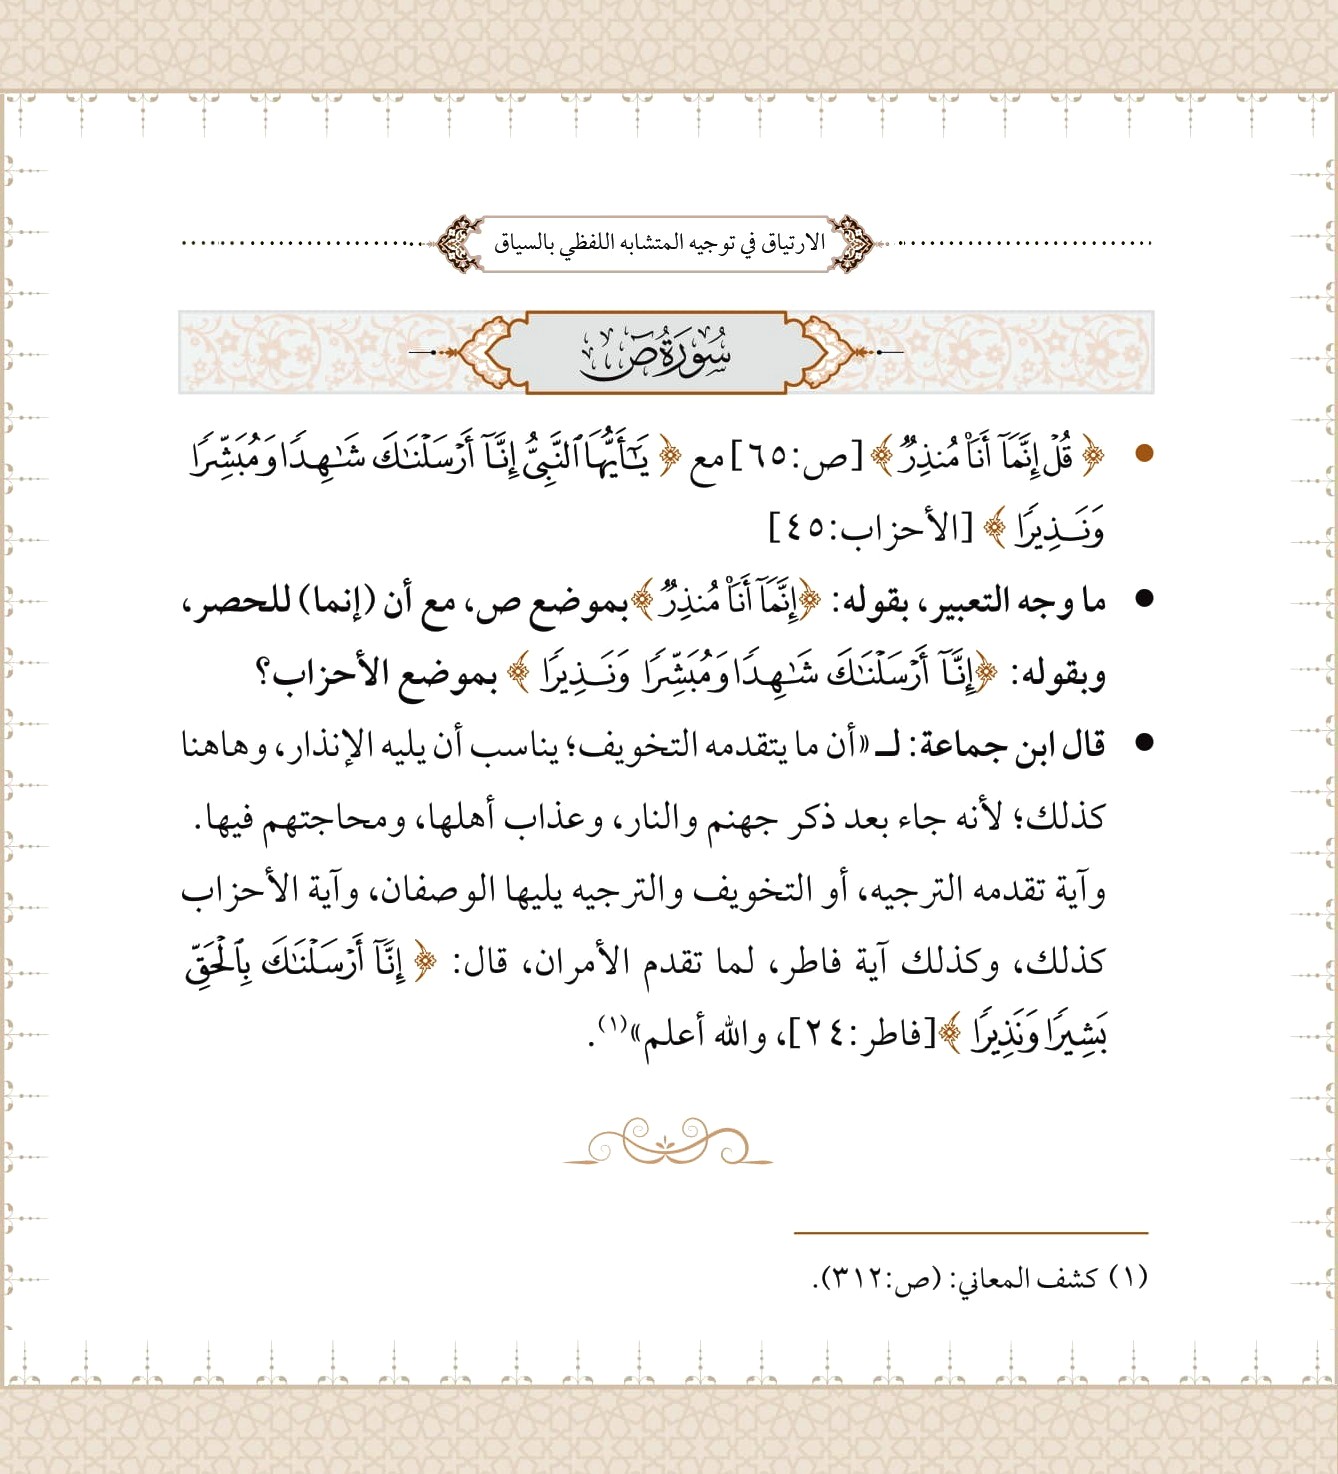 الارتياق في توجيه المتشابه اللفظي بالسياق
سُورَةُ صٓ
• ﴿قُلۡ إِنَّمَآ أَنَا۠ مُنذِرٞ﴾ [ص:٦٥] مع ﴿يَٰٓأَيُّهَا ٱلنَّبِيُّ إِنَّآ أَرۡسَلۡنَٰكَ شَٰهِدٗا وَمُبَشِّرٗا
وَنَذِيرٗا﴾ [الأحزاب:٤٥]
• ما وجه التعبير، بقوله: ﴿إِنَّمَآ أَنَا۠ مُنذِرٞ﴾ بموضع ص، مع أن (إنما) للحصر،
وبقوله: ﴿إِنَّآ أَرۡسَلۡنَٰكَ شَٰهِدٗا وَمُبَشِّرٗا وَنَذِيرٗا﴾ بموضع الأحزاب؟
• قال ابن جماعة: لـ «أن ما يتقدمه التخويف؛ يناسب أن يليه الإنذار، وهاهنا
كذلك؛ لأنه جاء بعد ذكر جهنم والنار، وعذاب أهلها، ومحاجتهم فيها.
وآية تقدمه الترجيه، أو التخويف والترجيه يليها الوصفان، وآية الأحزاب
كذلك، وكذلك آية فاطر، لما تقدم الأمران، قال: ﴿إِنَّآ أَرۡسَلۡنَٰكَ بِٱلۡحَقِّ
بَشِيرٗا وَنَذِيرٗا﴾ [فاطر:٢٤]، والله أعلم»(١).
(١) كشف المعاني: (ص:٣١٢).